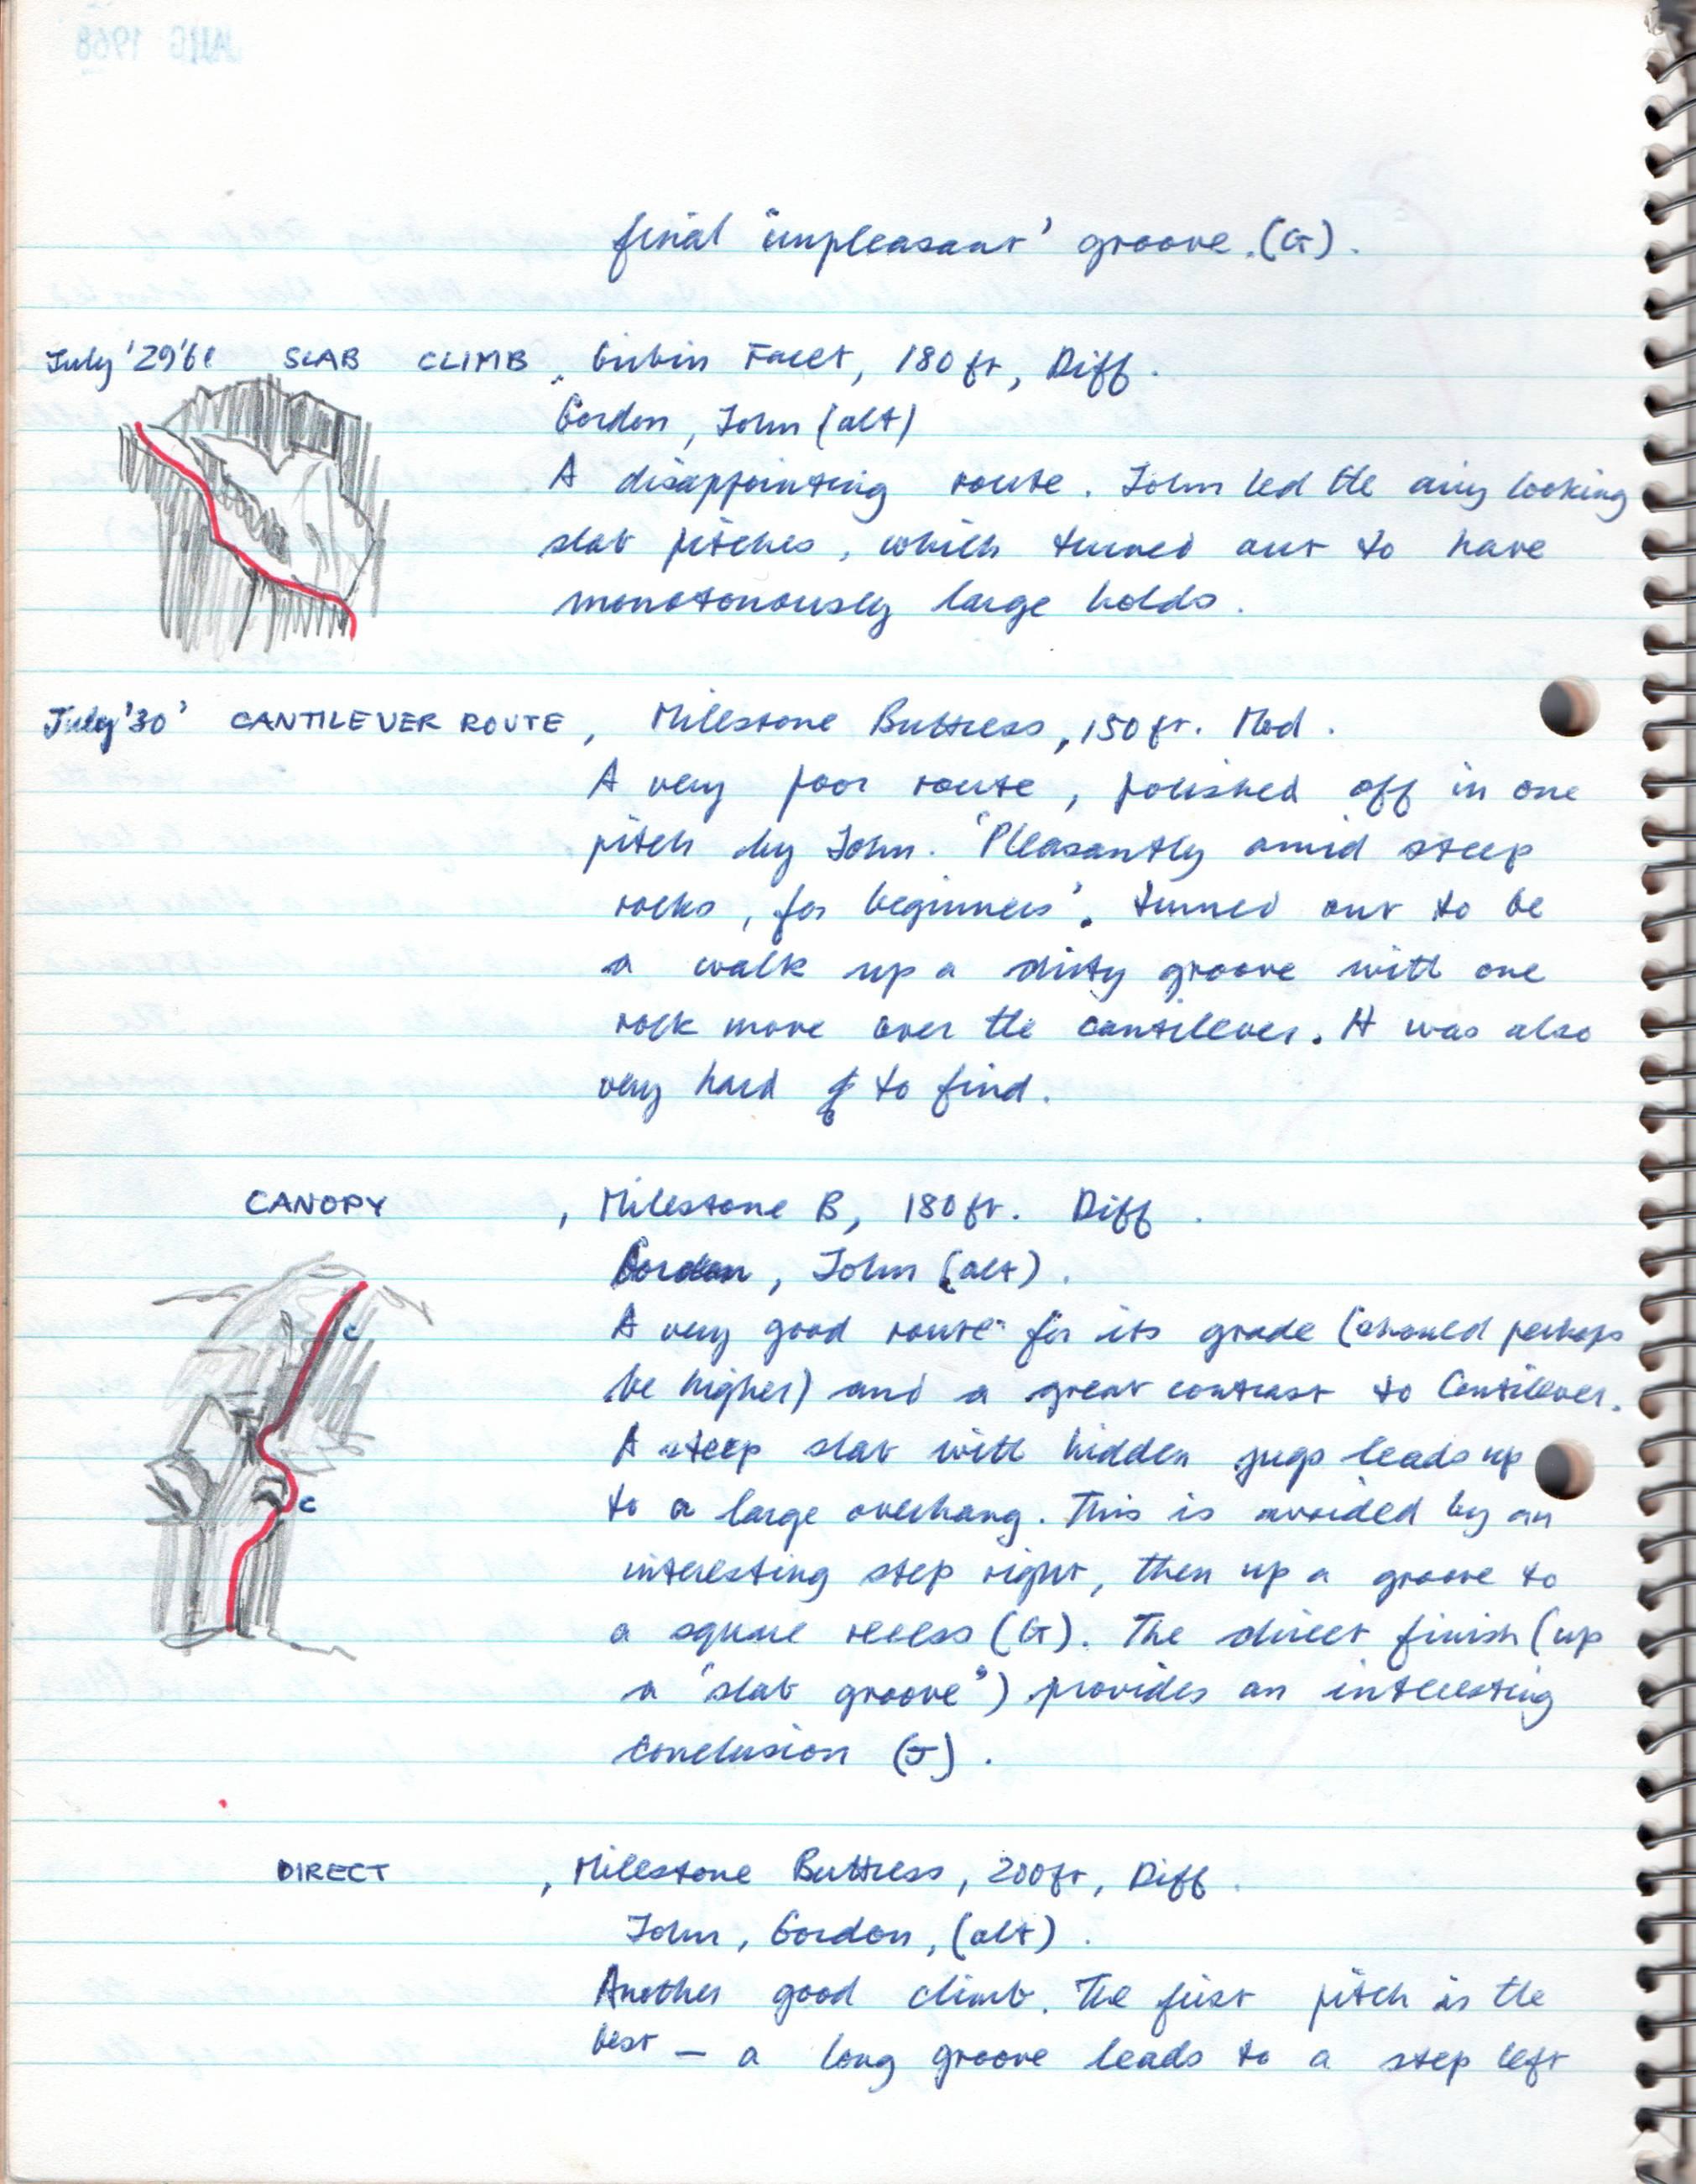 final 'unpleasant' groove. (G).
July '29'6 SLAB CLIMB, Facet, 180 ft, Diff.
Gordon, John (alt)
A disappointing route. John led the airy looking
slab pitches, which turned out to have
monotonously large holds.
July '30' CANTILEVER ROUTE, Milestone Buttress, 150 ft. Mod.
A very poor route, polished off in one
pitch by John. 'Pleasantly amid steep
rocks, for beginners'. turned out to be
a walk up a dirty groove with one
rock move over the cantilever. It was also
very hard to find.
CANOPY, Milestone B, 180 ft. Diff.
Gordon, John (alt).
A very good route for its grade (should perhaps
be higher) and a great contrast to Cantilever.
A steep slab with hidden jugs leads up
to a large overhang. This is avoided by an
interesting step right, then up a groove to
a square recess (G). The direct finish (up
a "slab groove") provides an interesting
conclusion (J).
c
c
DIRECT, Milestone Buttress, 200 ft, Diff.
John, Gordon, (alt).
Another good climb. The first pitch is the
best – a long groove leads to a step left